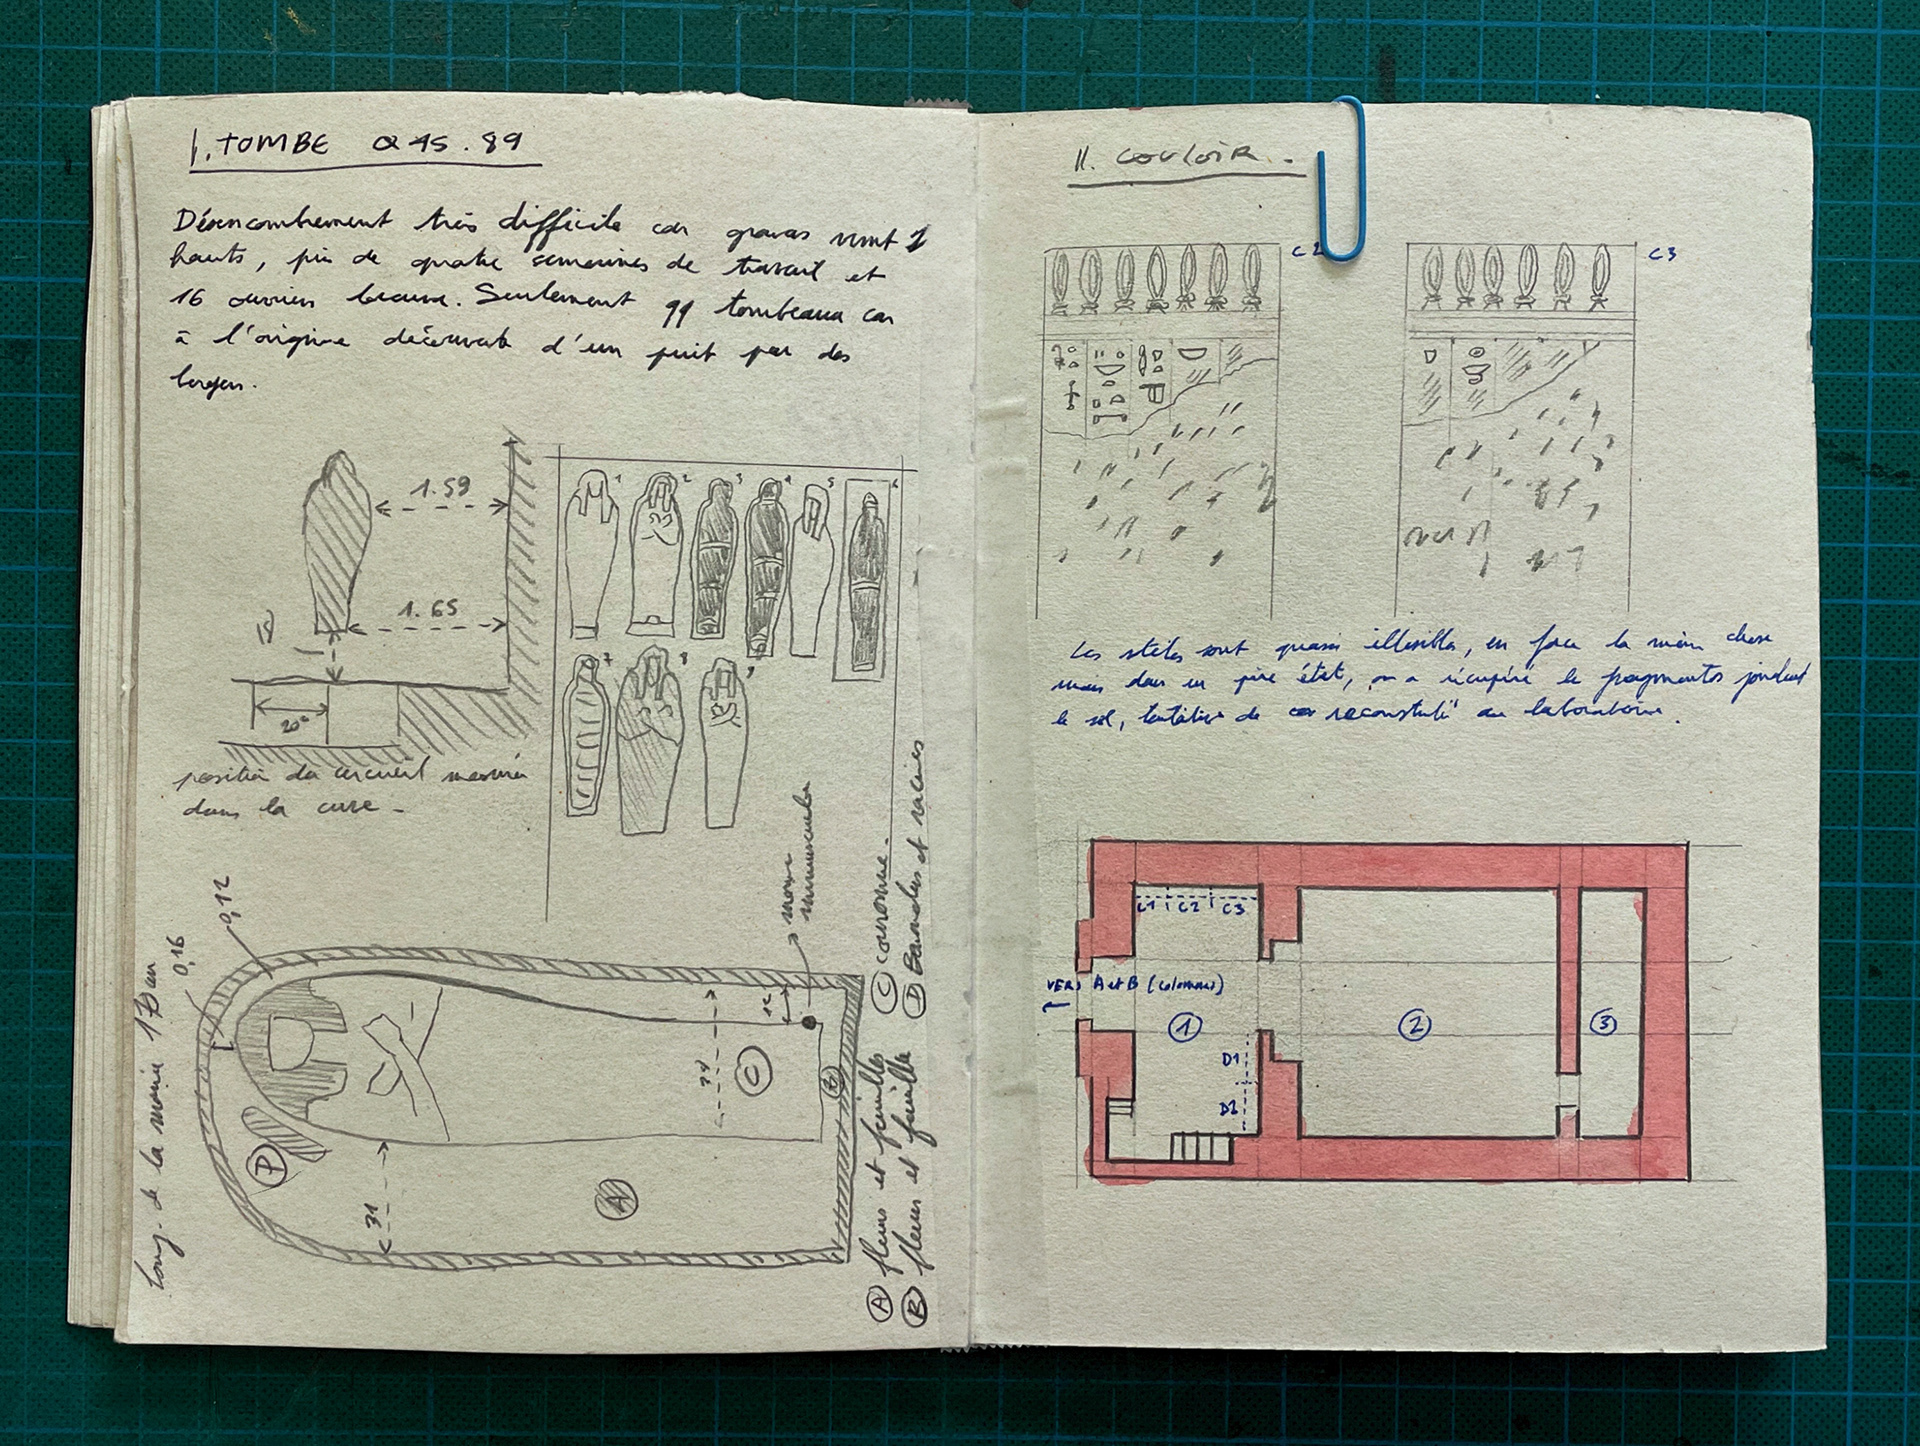 I. TOMBE Q 45.89
Désencombrement très difficile car gravas sont
hauts, pin de quatre semaines de travail et
16 ouvriers Seulement 91 tombeaux car
à l'origine découverte d'un puit par des
1 2 3 4 5 6
1.59
1.65
18
20°
7 8 9
position du cercueil
dans la cuve -
momie minuscule
long. de la momie
0,16
0,12
12
74
31
A
B
C
D
A fleurs et feuilles
B fleurs et feuille
C couronne.
D Bandes et racines
II. COULOIR -
C2
C3
Les stèles sont quasi illisibles, en face la même chose
mais dans un pire état, on a récupéré le fragments jonchant
le sol, tentative de reconstruti° au laboratoire.
C1 C2 C3
VERS A et B (colonnes)
1
2
3
D1
D2